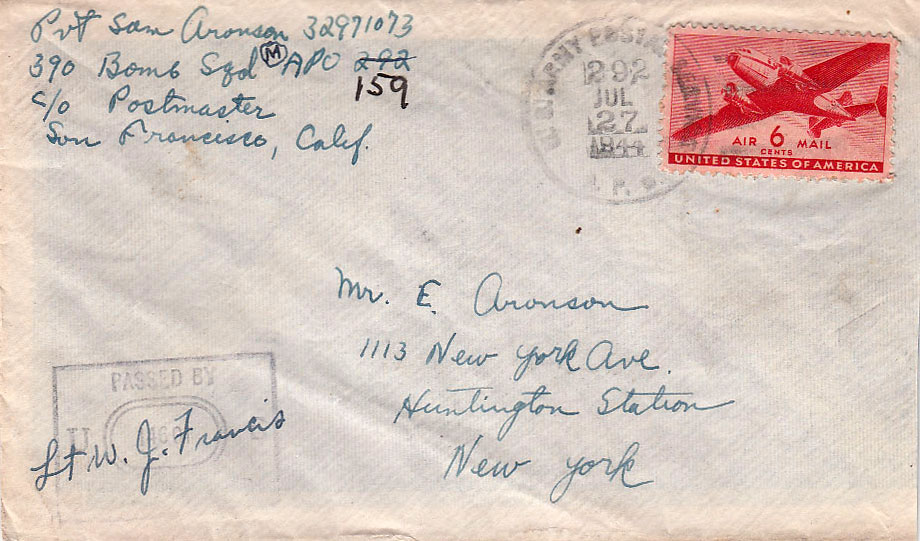 Pvt Sam Aronson 32971073
390 Bomb Sqd (M) APO 292
159
c/o Postmaster
San Francisco, Calif.
U.S. ARMY POSTAL
1292
JUL
27
1944
A. P. O.
AIR 6 MAIL
CENTS
UNITED STATES OF AMERICA
Mr. E. Aronson
1113 New York Ave.
Huntington Station
New York
PASSED BY
Lt W. J. Francis